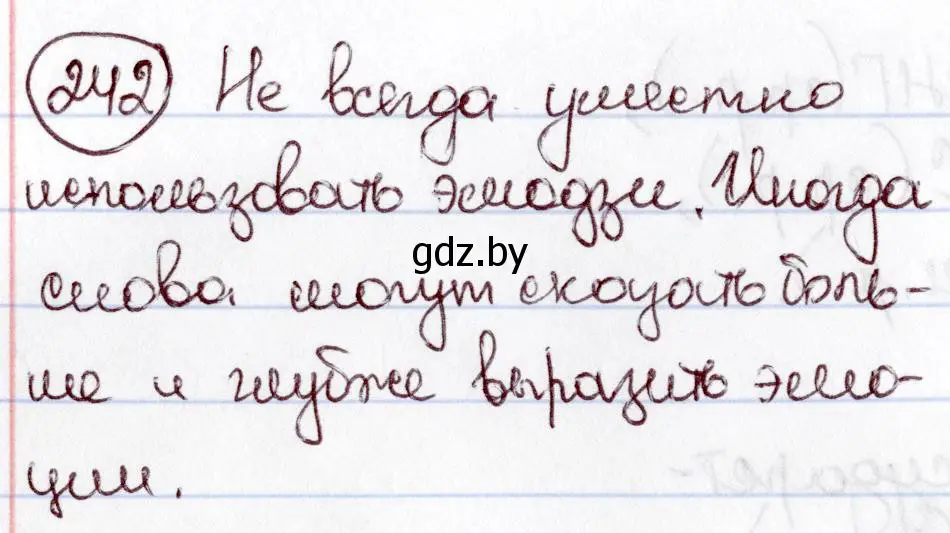 242 Не всегда уместно
использовать эмодзи. Иногда
gdz.by
слова могут сказать боль-
ше и глубже выразить эмо-
ции.